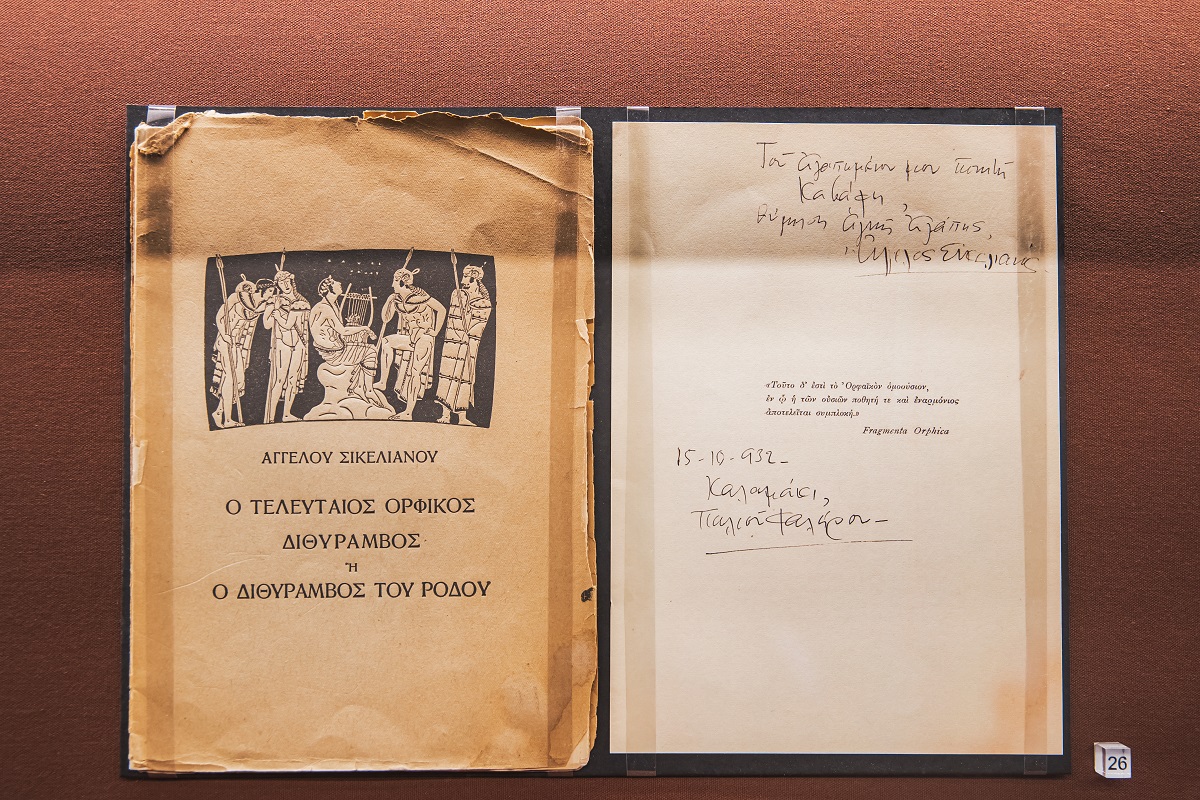 ΑΓΓΕΛΟΥ ΣΙΚΕΛΙΑΝΟΥ
Ο ΤΕΛΕΥΤΑΙΟΣ ΟΡΦΙΚΟΣ
ΔΙΘΥΡΑΜΒΟΣ
Ή
Ο ΔΙΘΥΡΑΜΒΟΣ ΤΟΥ ΡΟΔΟΥ
Τοῦ ἀγαπημένου μου ποιητῆ
Καβάφη,
θύμηση ἁγνῆς ἀγάπης,
Ἄγγελος Σικελιανός
«Τοῦτο δ' ἐστὶ τὸ Ὀρφαϊκὸν ὁμοούσιον,
ἐν ᾧ ἡ τῶν οὐσιῶν ποθητή τε καὶ ἐναρμόνιος
ἀποτελεῖται συμπλοκή.»
Fragmenta Orphica
15-10-932-
Καλαμάκι,
Παλιοῦ Φαλήρου-
26